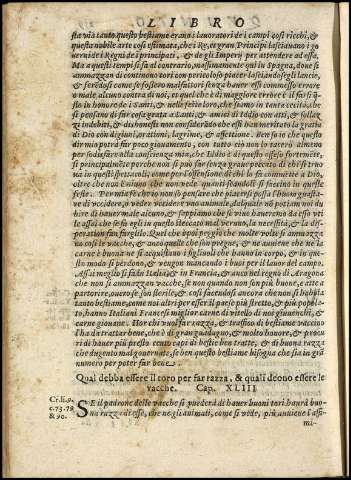 LIBRO
sta via tanto questo bestiame erano i lauoratori de i campi così ricchi, &
questa nobile arte così estimata, che i Re, et gran Principi lasciauano i go
uerni de i Regni de i principati, & de gli Imperij per attendere ad essa.
Ma a questi tempi si fa al contrario, massimamente qui in Spagna, doue se
ammazzan di continouo tori con pericolo piacer lasciandosegli lancie,
& feredosi come se fossero malfattori senza hauer essi commesso errore
o male alcuno contra di noi, et quel che è di maggiore errore è il far si que
sto in honore de i Santi, & nelle feste loro, che siamo in tanta cecità, che
si pensano di far cosa grata a Santi, & amici di Iddio con atti, & sollazzi
indebiti, & dishonesti non considerando che essi han meritato la gratia
di Dio con digiuni, orationi, lagrime, & afflittione. Ben so io che questo
dir mio potrà far poco giouamento, con tutto ciò non lo tacerò almeno
per sodisfare alla conscienza mia, che Iddio è di questo offeso fortemente,
si principalmente perche non si può far senza gran pericolo di chi si troua
in questi spettacoli, come per l'offensione di chi lo fa commette a Dio,
oltre che non è niuno che non vede quanti scandoli si faccino in queste
feste. Per mia fe che io non sò pensare che piacer si possa l'huomo gustare
di vccidere, ò veder vccidere vno animale, dal quale nò potiam noi dire
di hauer male alcuno, & seppiamo che se viuo haueremo da esso vtile
assai che se sia egli in questo steccato mal veruno, la necessità, & la disperation
fan fargielo. Quel che è di peggio che molte volte si ammazzano
così le vacche, & anco quelle che son pregne, & ne auuiene che ne la
carne è buona ne si acquistano i figliuoli che hanno in corpo, & in questo
modo si perdono, & vengon mancando i buoi per il lauor del campo.
Assai meglio si fa in Italia, & in Francia, & anco nel regno di Aragona
che non si ammazzan vacche, se non quando non son più buone, e atte a
partorire, ouero se son sterili, & così facendosi ancora che non si habbia
tanto bestiame, come noi altri per esser il paese più stretto, & più popolato,
hanno Italiani Francesi miglior carne di vitella di noi giuuenchi, &
carne giouane. Hor chi vuol far razza, & trafico di bestiame vaccino
l'ha da trattar bene, che è di gran guadagno, & molto honore, & procuri
di hauer più presto cento capi di bestie ben tratte, & di buona razza
che dugento mal gouernate, se ben questo bestiame bisogna che sia in gran
numero per poter far bene.
Qual debba essere il toro per far razza, & quali deono essere le
vacche. Cap. XLIII
Cr. li. 9.
c. 73. 79
& 90.
SE il padrone delle vacche si puederà di hauer buoni tori hauerà buona
razza di esse, che ne gli animali, come si vede, più auuiene l'assi
mi-